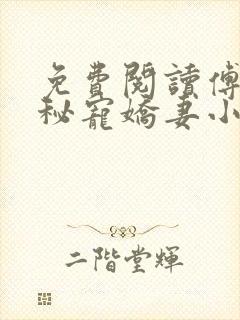 免費閱讀傅
秘寵嬌妻小
二階堂輝